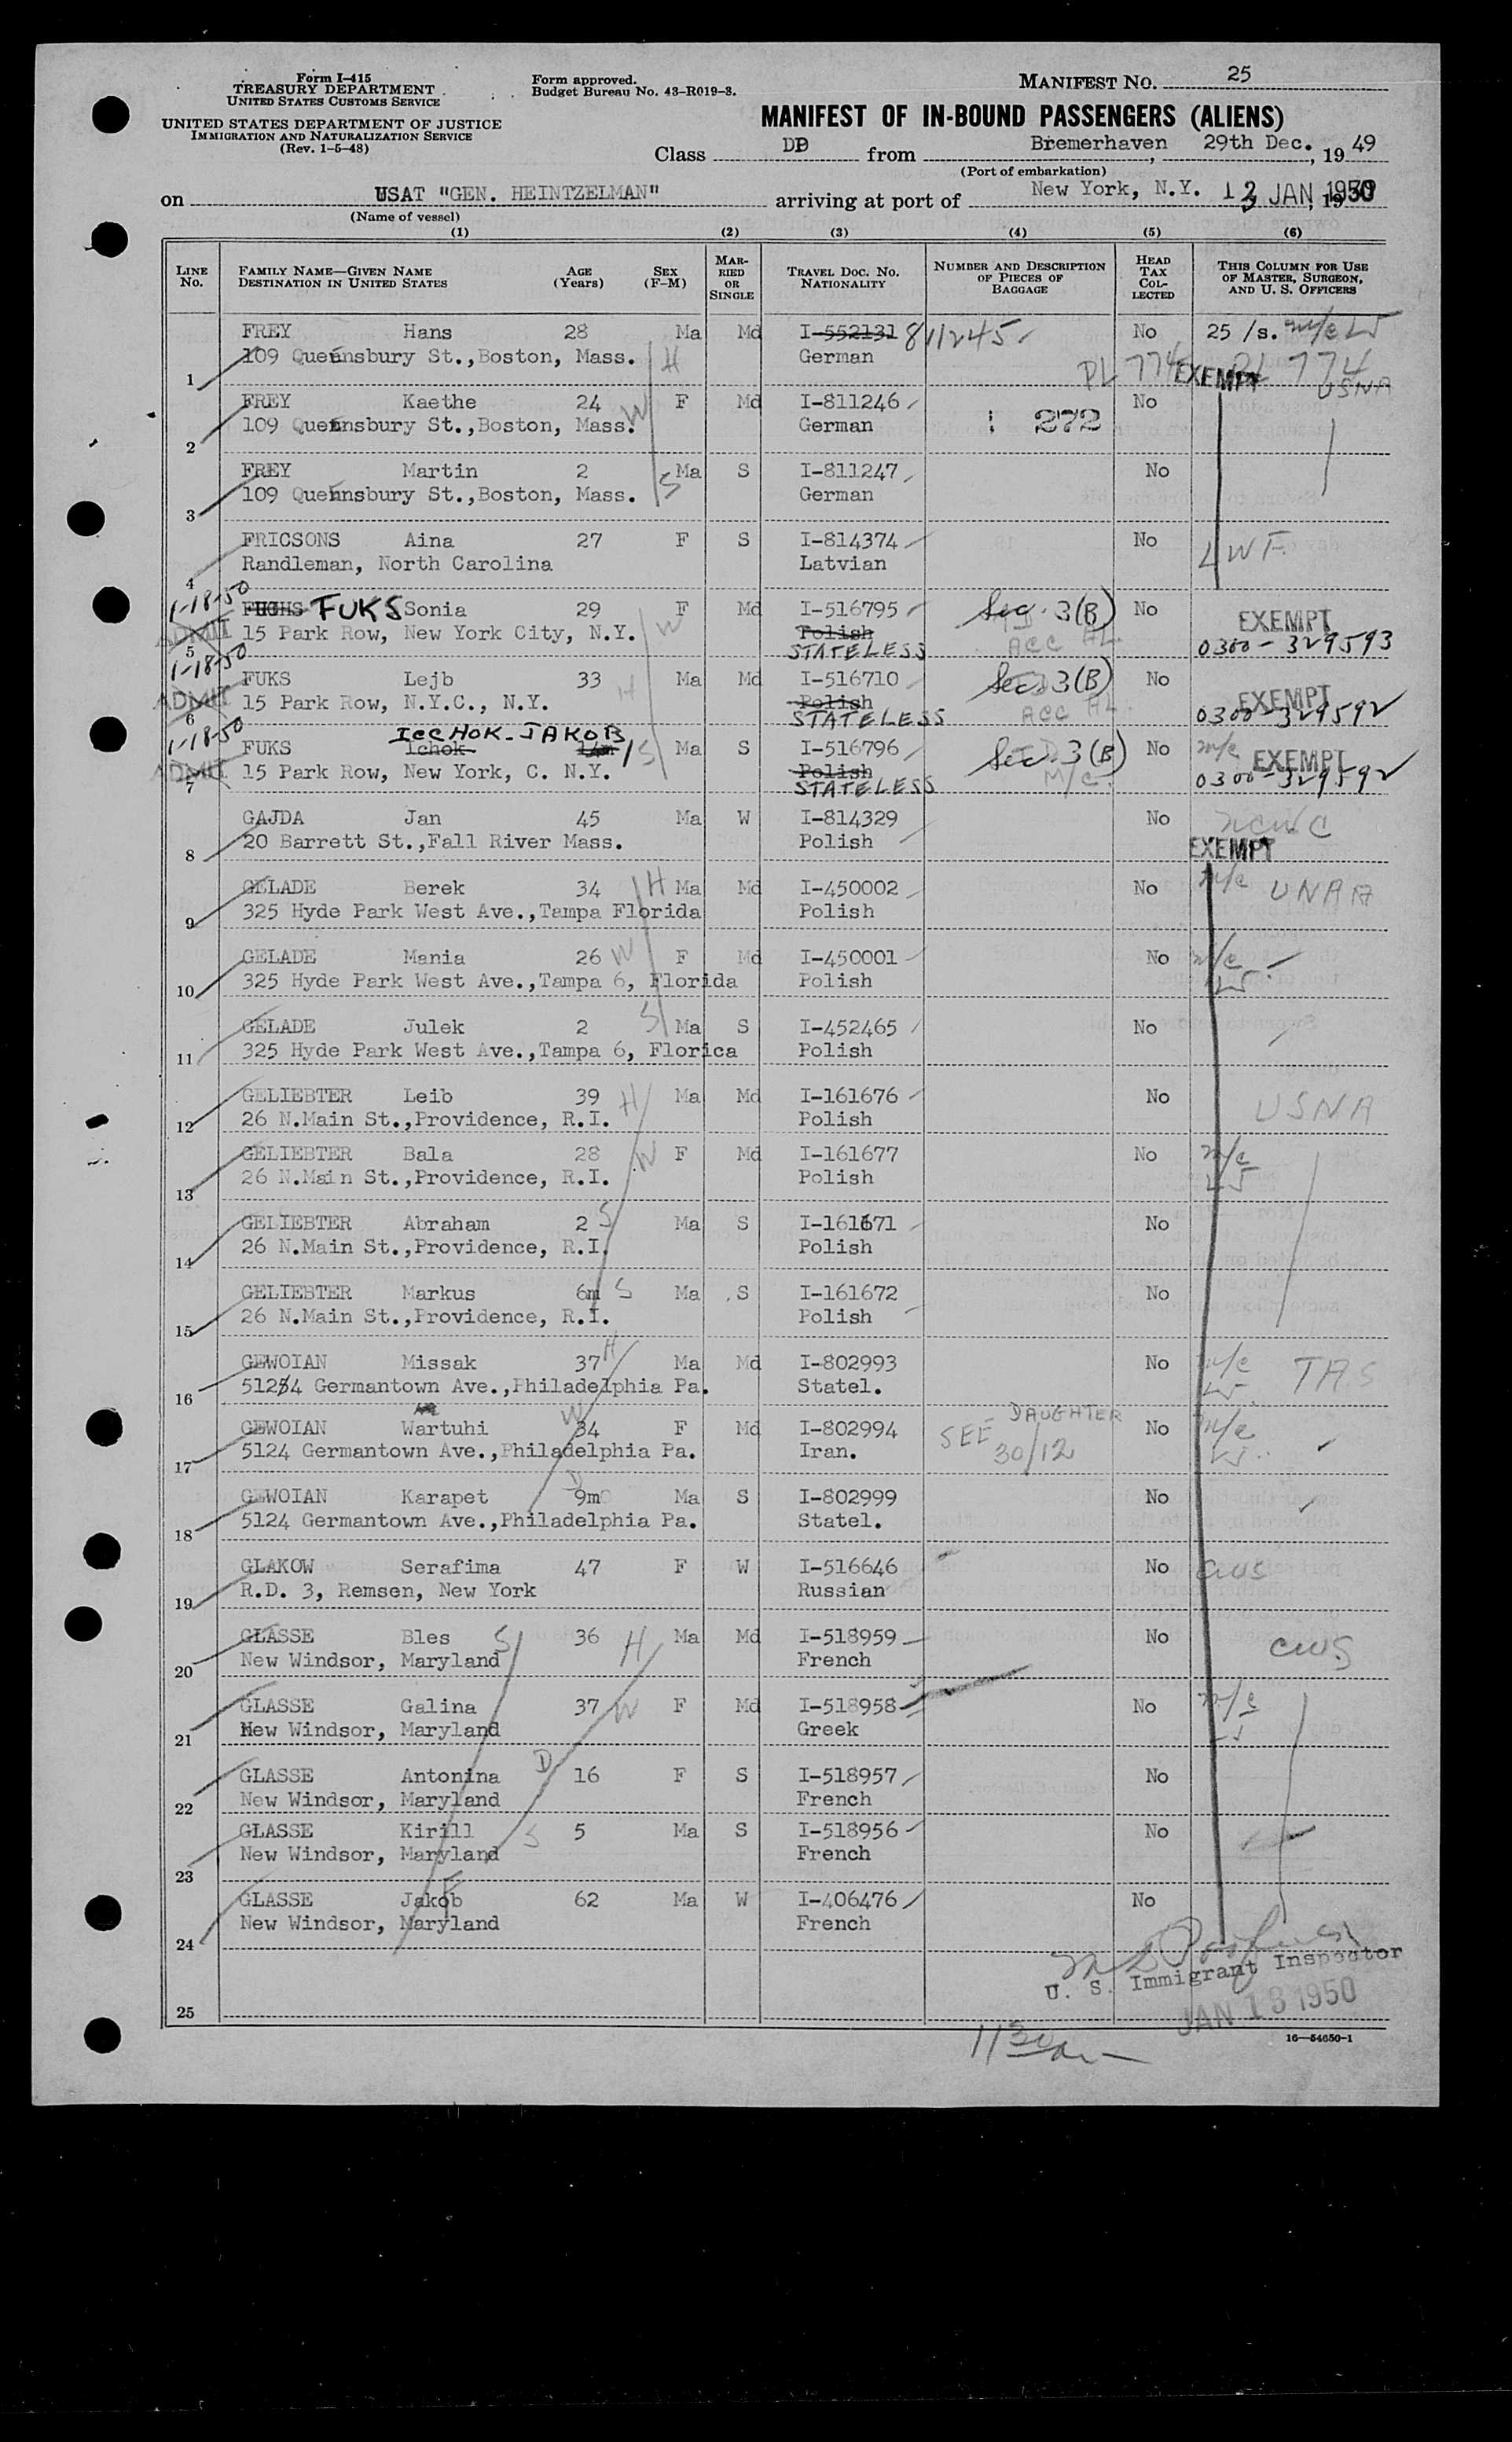 Form I-415
TREASURY DEPARTMENT
UNITED STATES CUSTOMS SERVICE
UNITED STATES DEPARTMENT OF JUSTICE
IMMIGRATION AND NATURALIZATION SERVICE
(Rev. 1-5-48)
Form approved.
Budget Bureau No. 43-R019-3.
MANIFEST NO. 25
MANIFEST OF IN-BOUND PASSENGERS (ALIENS)
Class DP from Bremerhaven, 29th Dec., 19 49
(Port of embarkation)
on USAT "GEN. HEINTZELMAN" arriving at port of New York, N.Y. 13 JAN 1950
(Name of vessel)
(1) (2) (3) (4) (5) (6)
LINE NO. FAMILY NAME—GIVEN NAME DESTINATION IN UNITED STATES AGE (Years) SEX (F-M) MARRIED OR SINGLE TRAVEL DOC. NO. NATIONALITY NUMBER AND DESCRIPTION OF PIECES OF BAGGAGE HEAD TAX COLLECTED THIS COLUMN FOR USE OF MASTER, SURGEON, AND U. S. OFFICERS
FREY Hans 28 Ma Md I-552131 811245 No 25 /s. m/c
1 109 Queensbury St.,Boston, Mass. H German PL 774 EXEMPT PL 774 USNA
FREY Kaethe 24 W F Md I-811246 No
2 109 Queensbury St.,Boston, Mass. German 272
FREY Martin 2 Ma S I-811247 No
3 109 Queensbury St.,Boston, Mass. S German
FRICSONS Aina 27 F S I-814374 No LWF
4 Randleman, North Carolina Latvian
1-18-50 FUCHS FUKS Sonia 29 F Md I-516795 Sec. 3(B) No EXEMPT
ADMIT 5 15 Park Row, New York City, N.Y. W Polish STATELESS ACC HL. 0300-329593
1-18-50 FUKS Lejb 33 H Ma Md I-516710 Sec. 3(B) No EXEMPT
ADMIT 6 15 Park Row, N.Y.C., N.Y. Polish STATELESS ACC HL. 0300-329592
ICCHOK-JAKOB
1-18-50 FUKS Ichok 1 S Ma S I-516796 Sec. 3(B) No m/c EXEMPT
ADMIT 7 15 Park Row, New York, C. N.Y. Polish STATELESS M/C. 0300-329592
GAJDA Jan 45 Ma W I-814329 No NCWC
8 20 Barrett St.,Fall River Mass. Polish EXEMPT
GELADE Berek 34 H Ma Md I-450002 No m/c
9 325 Hyde Park West Ave.,Tampa Florida Polish
GELADE Mania 26 W F Md I-450001 No m/c
10 325 Hyde Park West Ave.,Tampa 6, Florida Polish
GELADE Julek 2 S Ma S I-452465 No
11 325 Hyde Park West Ave.,Tampa 6, Florica Polish
GELIEBTER Leib 39 H Ma Md I-161676 No USNA
12 26 N.Main St.,Providence, R.I. Polish
GELIEBTER Bala 28 W F Md I-161677 No m/c
13 26 N.Main St.,Providence, R.I. Polish
GELIEBTER Abraham 2 S Ma S I-161671 No
14 26 N.Main St.,Providence, R.I. Polish
GELIEBTER Markus 6m S Ma S I-161672 No
15 26 N.Main St.,Providence, R.I. Polish
GEWOIAN Missak 37 H Ma Md I-802993 No m/c TAS
16 5124 Germantown Ave.,Philadelphia Pa. Statel.
GEWOIAN Wartuhi 34 W F Md I-802994 SEE DAUGHTER 30/12 No m/c
17 5124 Germantown Ave.,Philadelphia Pa. Iran.
GEWOIAN Karapet 9m Ma S I-802999 No
18 5124 Germantown Ave.,Philadelphia Pa. Statel.
GLAKOW Serafima 47 F W I-516646 No CWS
19 R.D. 3, Remsen, New York Russian
GLASSE Bles S 36 H Ma Md I-518959 No CWS
20 New Windsor, Maryland French
GLASSE Galina 37 W F Md I-518958 No m/c
21 New Windsor, Maryland Greek
GLASSE Antonina D 16 F S I-518957 No
22 New Windsor, Maryland French
GLASSE Kirill S 5 Ma S I-518956 No
23 New Windsor, Maryland French
GLASSE Jakob F 62 Ma W I-406476 No
24 New Windsor, Maryland French
U. S. Immigrant Inspector
25 JAN 13 1950
1130am
16—54650-1